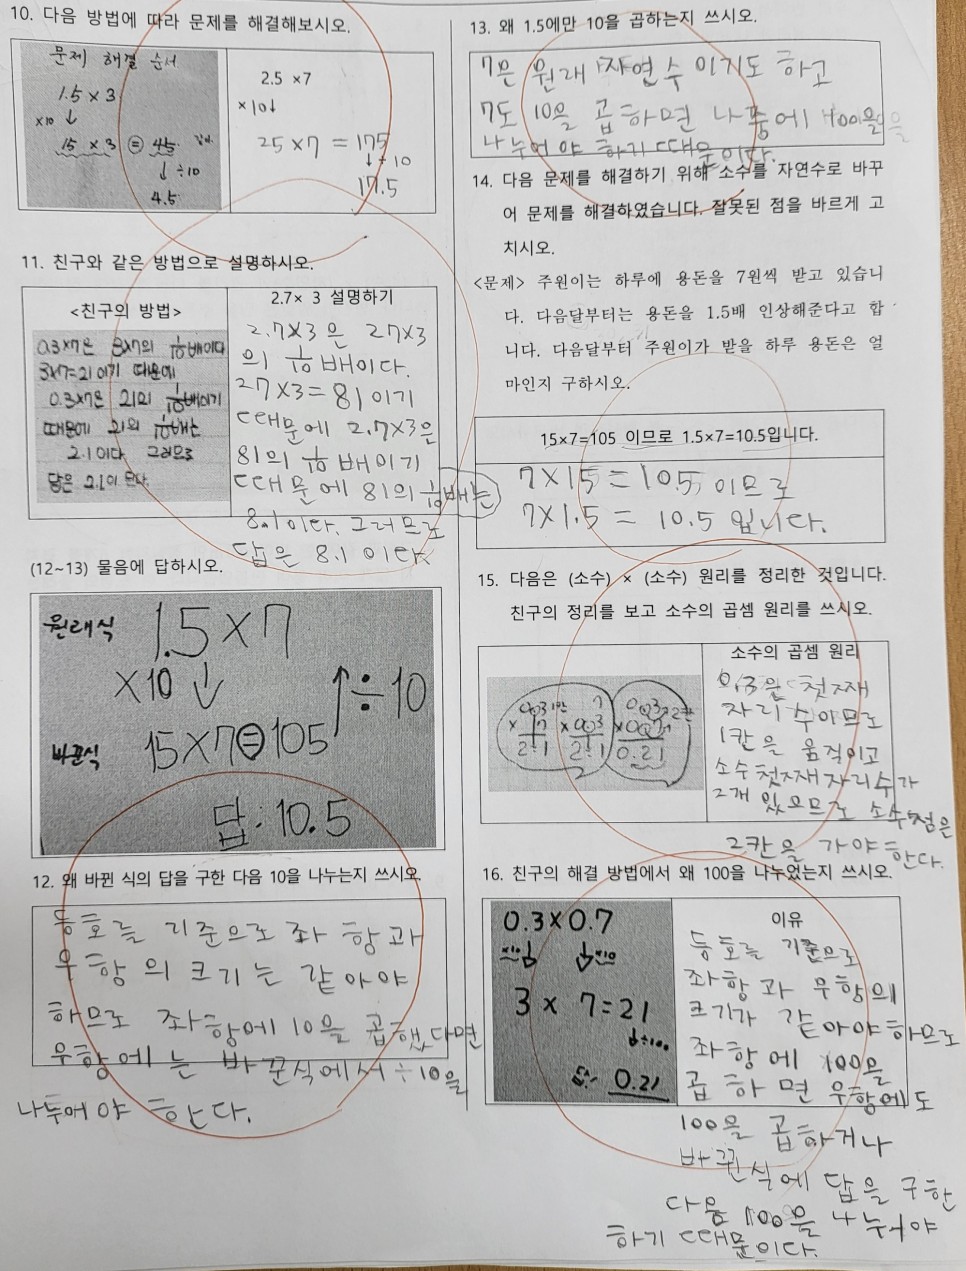 10. 다음 방법에 따라 문제를 해결해보시오.
문제 해결 순서
1.5 × 3
×10 ↓
15 × 3 = 45
↓ ÷10
4.5
2.5 ×7
×10↓
25×7 = 175
↓÷10
17.5
11. 친구와 같은 방법으로 설명하시오.
<친구의 방법>
0.3×7은 3×7의 1/10배이다
3×7=21이기 때문에
0.3×7은 21의 1/10배이기
때문에 21의 1/10배는
2.1이다 그러므로
답은 2.1이 된다.
2.7× 3 설명하기
2.7×3은 27×3
의 1/10배이다.
27×3=81이기
때문에 2.7×3은
81의 1/10배이기
때문에 81의 1/10배는
8.1이다. 그러므로
답은 8.1이다
(12~13) 물음에 답하시오.
원래식 1.5×7
×10 ↓ ↑÷10
바뀐식 15×7=105
답: 10.5
12. 왜 바뀐 식의 답을 구한 다음 10을 나누는지 쓰시오.
등호를 기준으로 좌 항과
우 항의 크기는 같아야
하므로 좌항에 10을 곱했다면
우항에는 바꾼식에서 ÷10을
나누어야 한다.
13. 왜 1.5에만 10을 곱하는지 쓰시오.
7은 원래 자연수이기도 하고
7도 10을 곱하면 나중에 100을
나누어야 하기 때문이다.
14. 다음 문제를 해결하기 위해 소수를 자연수로 바꾸
어 문제를 해결하였습니다. 잘못된 점을 바르게 고
치시오.
<문제> 주원이는 하루에 용돈을 7원씩 받고 있습니
다. 다음달부터는 용돈을 1.5배 인상해준다고 합
니다. 다음달부터 주원이가 받을 하루 용돈은 얼
마인지 구하시오.
15×7=105 이므로 1.5×7=10.5입니다.
7×15=105이므로
7×1.5= 10.5입니다.
15. 다음은 (소수) × (소수) 원리를 정리한 것입니다.
친구의 정리를 보고 소수의 곱셈 원리를 쓰시오.
소수의 곱셈 원리
0.3은 첫째
자리 수이므로
1칸을 움직이고
소수 첫째자리수가
2개 있으므로 소수점은
2칸을 가야 한다.
16. 친구의 해결 방법에서 왜 100을 나누었는지 쓰시오.
0.3×0.7
×10↓ ↓×10
3 × 7=21
↓÷100
답: 0.21
이유
등호를 기준으로
좌항과 우항의
크기가 같아야하므로
좌항에 100을
곱하면 우항에도
100을 곱하거나
바뀐식에 답을 구한
다음 100을 나누어야
하기 때문이다.